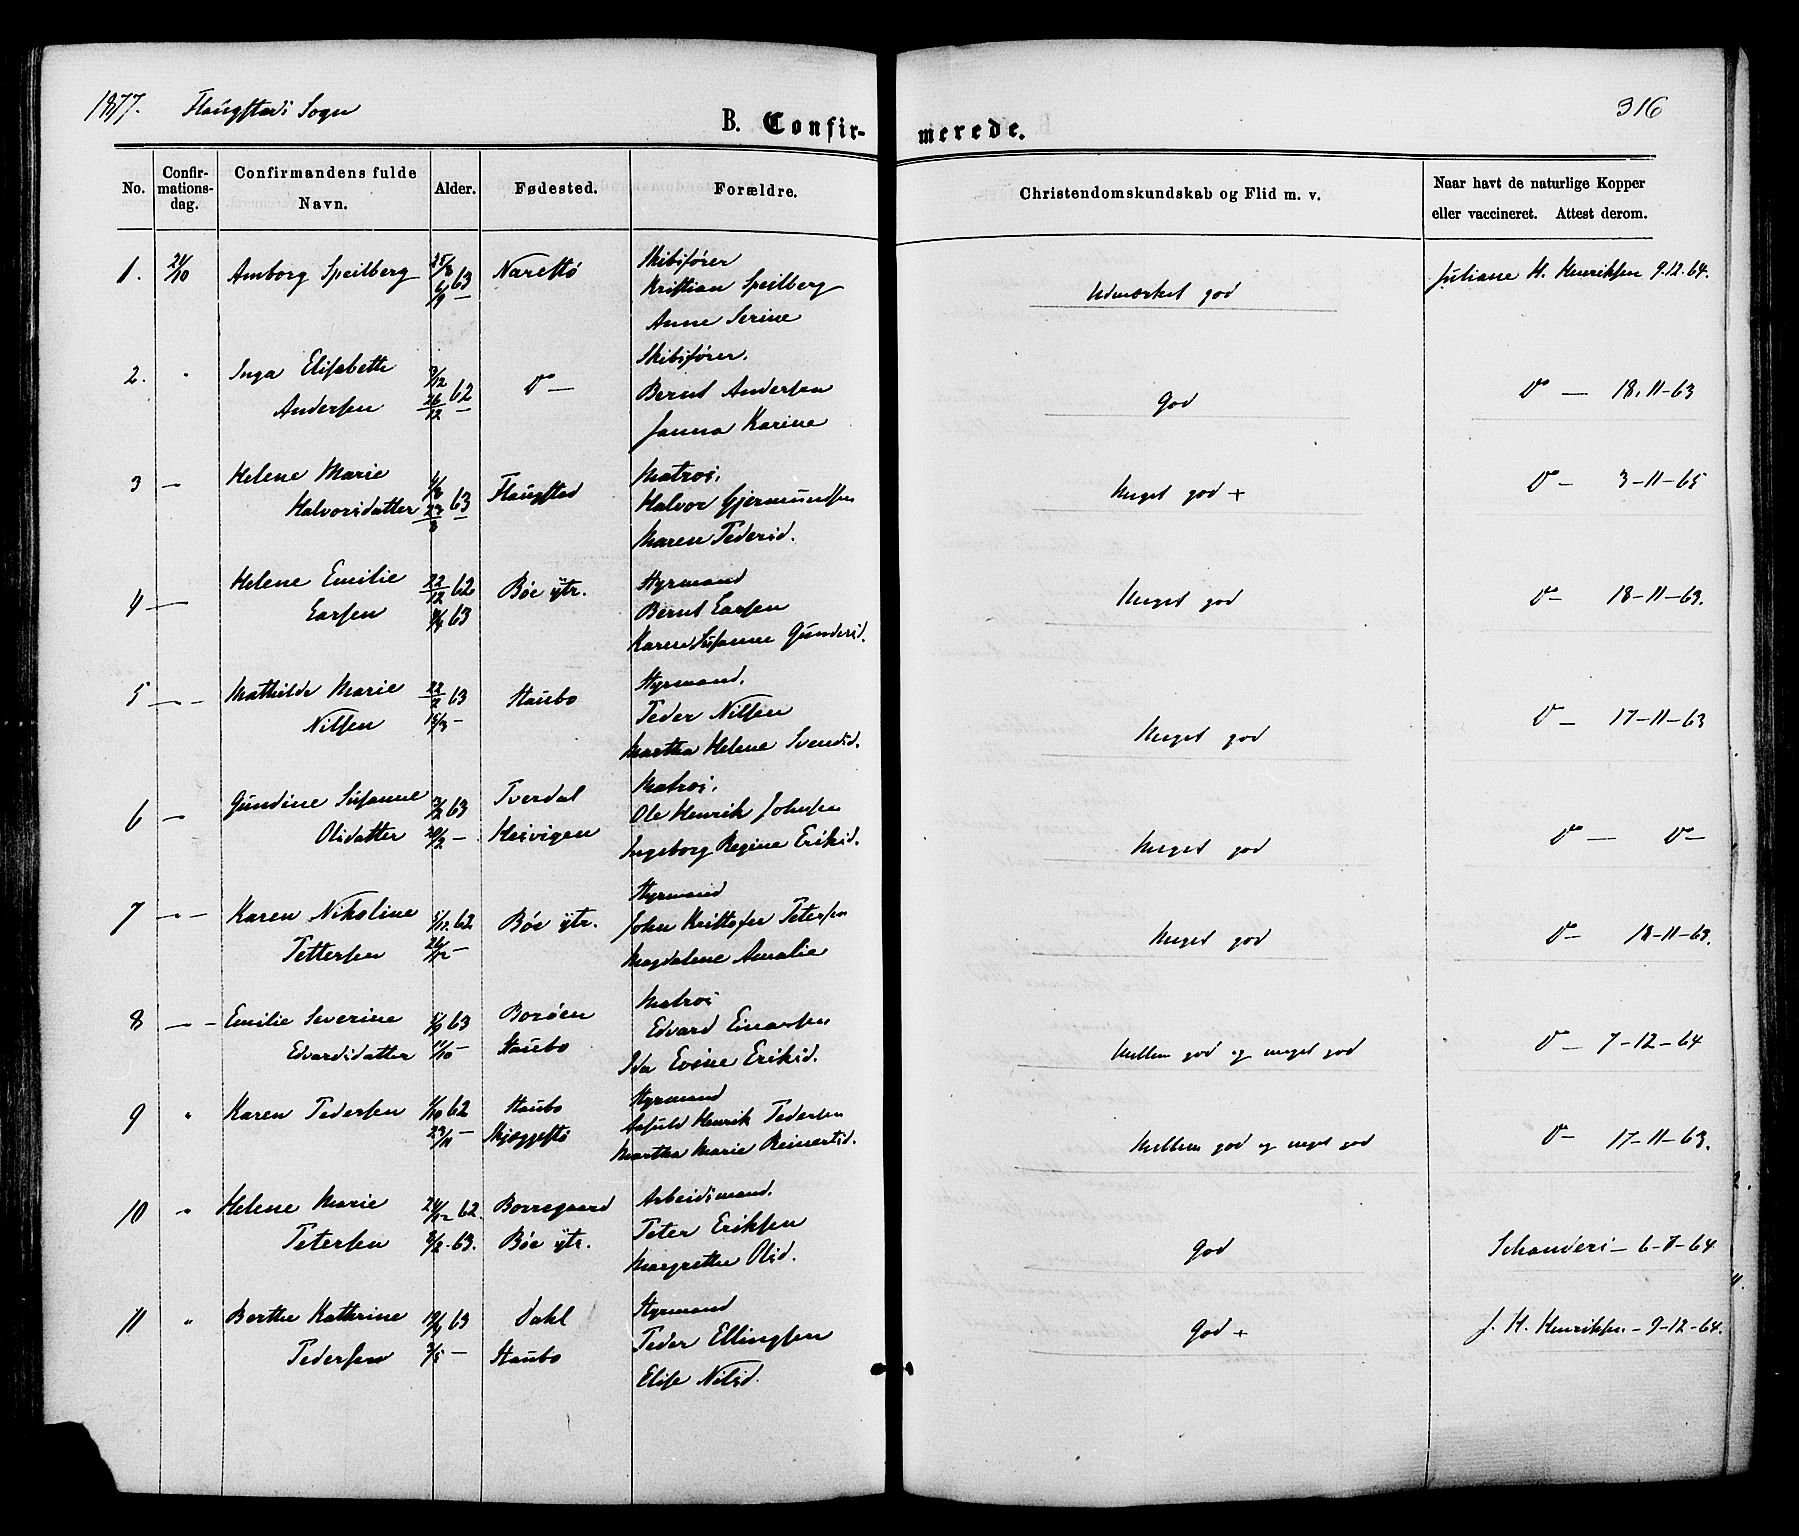 1877. Flaugstads Sogn
316
B. Confirmerede.
No. Confirmationsdag. Confirmandens fulde Navn. Alder. Fødested. Forældre. Christendomskundskab og Flid m. v. Naar havt de naturlige Kopper eller vaccineret. Attest derom.
1. 21/10 Amborg Speilberg 25/8 63 Narestø Skibsfører
6/9 — Kristian Speilberg Udmærket god Juliane H. Henriksen 9.12.64.
Anne Serine
2. " Inga Elisabeth 9/12 62 Do — Skibsfører.
Andersen 26/12 — Bernt Andersen God Do — 18.11-63
Janna Karine
3 — Helene Marie 63 Flaugstad Matros.
Halvorsdatter 23/8 — Halvor Gjermundsen Meget god + Do — 3-11-65
Maren Pedersd.
4 — Helene Emilie 22/12 62 Bøe ytr. Styrmand
Larsen 63 Bernt Larsen Meget god Do — 18-11-63.
Karen Susanne Gundersd.
5 — " — Mathilde Marie 22/2 63 Staubo Styrmand.
Nilsen 15/3 — Peder Nilsen Meget god Do — 17-11-63
Martha Helene Svendsd.
6 — " — Gundine Susanne 63 Tverdal Matros.
Olsdatter 20/2 — Hesvigen Ole Henrik Johnsen Meget god Do — Do —
Ingeborg Regine Eriksd.
7 — " — Karen Nikoline 5/11 62 Bøe ytr. Styrmand
Pettersen 26/12 — John Kristofer Petersen Meget god Do — 18-11-63.
Magdalene Amalie
8 — " — Emilie Severine 5/9 63 Borøen Matros
Edvardsdatter 11/10 — Staubo Edvard Einarsen Mellem god og meget god Do — 7-12-64
Ida Evine Eriksd.
9 " Karen Pedersen 4/10 62 Staubo Styrmand
23/11 — Skjæggestø Henrik Pedersen Mellem god og meget god Do — 17-11-63.
Martha Marie Reinertsd.
10 " Helene Marie 24/12 62. Borregaard Arbeidsmand.
Petersen 8/2 63. Bøe ytr. Peter Eriksen God Schanders — 6-7-64
Margrethe Olsd.
11 " Berthe Kathrine 19/4 63 Dahl Styrmand
Pedersen 3/5 — Staubo Peder Ellingsen God + J. H. Henriksen — 9-12-64.
Elise Nilsd.